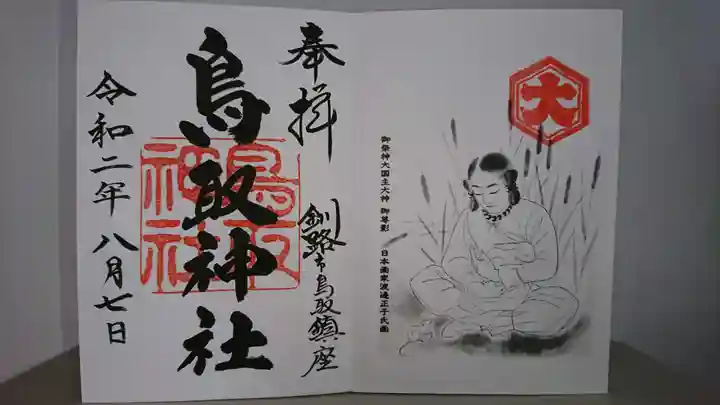 大
御祭神大国主大神 御尊影 日本画家渡邉正子氏画
奉拝
釧路市鳥取鎮座
鳥取神社
鳥取
神社
令和二年八月七日